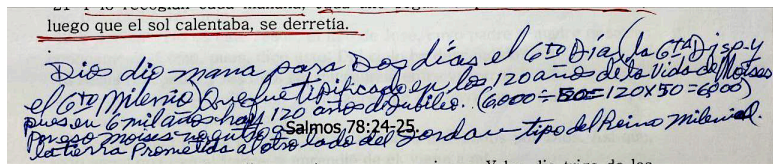 21 Y lo recogían cada mañana,
luego que el sol calentaba, se derretía.
Dios dio mana para Dos días el 6to Dia (la 6ta Disp. y
el 6to Milenio) Que fue tipificado en los 120 años de la Vida de Moises
pues en 6 mil años hay 120 años de Jubileo. (6,000 ÷ 50 = 120 x 50 = 6,000)
Por eso moises no entro a
Salmos 78:24-25.
la tierra Prometida al otro lado del Jordan tipo del Reino Milenial.